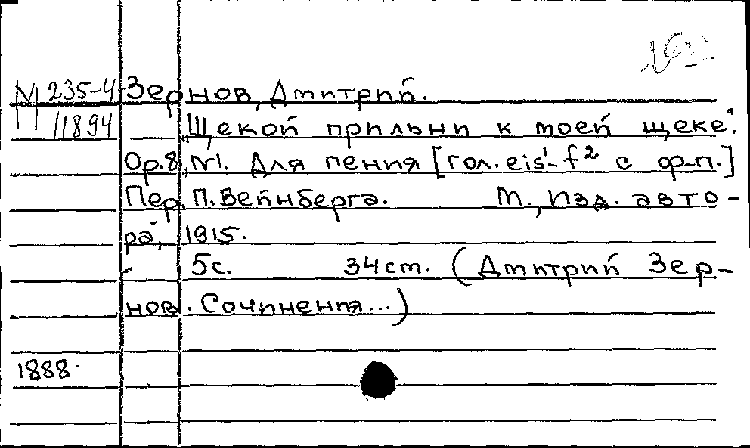 М 235-4 Зернов, Дмитрий.
11894 "Щекой прильни к моей щеке".
Op.8, N1. Для пения [гол. eis¹-f² с ф-п.]
Пер. П. Вейнберга. М., Изд. авто-
ра, 1915.
5с. 34 cm. (Дмитрий Зер-
нов. Сочинения...)
1888.